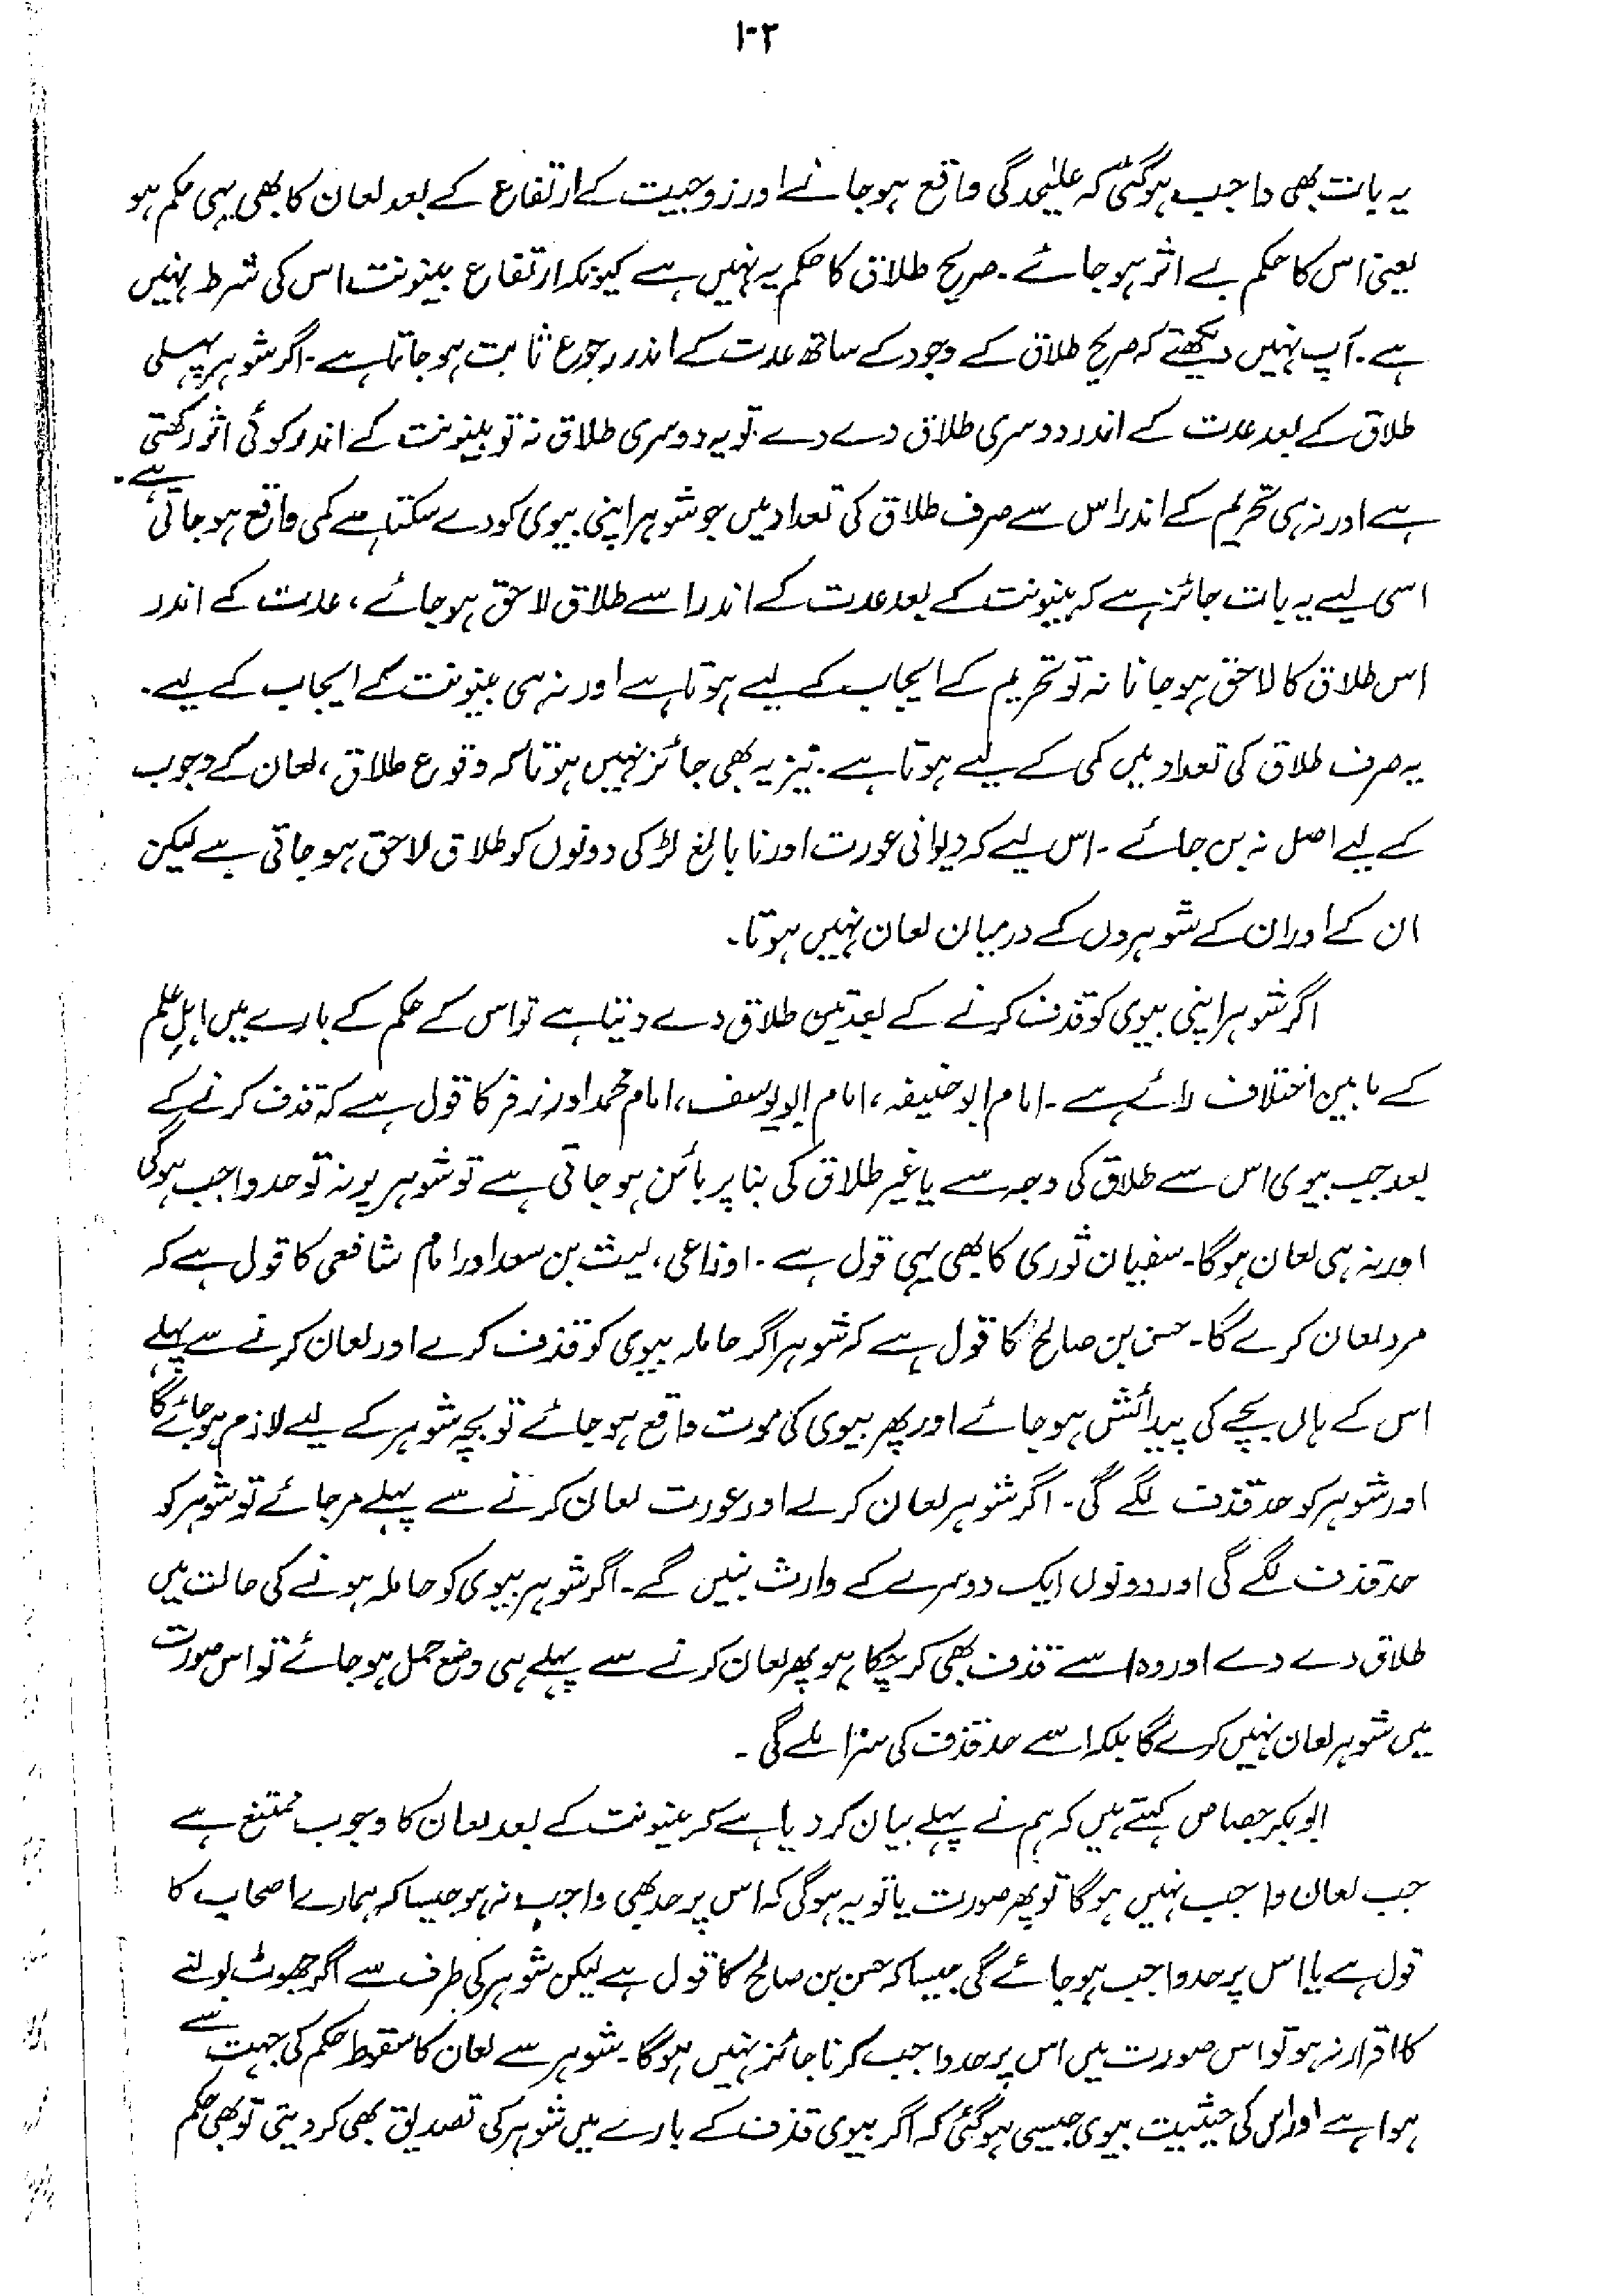 ۱۰۳
یہ بات بھی واجب ہوگئی کہ علیٰحدگی واقع ہو جانے اور زوجیت کے ارتفاع کے بعد لعان کا بھی یہی حکم ہو
یعنی اس کا حکم بے اثر ہو جائے۔ صریح طلاق کا حکم یہ نہیں ہے کیونکہ ارتفاع بینونت اس کی شرط نہیں
ہے۔ آپ نہیں دیکھتے کہ صریح طلاق کے وجود کے ساتھ عدت کے اندر رجوع ثابت ہو جاتا ہے۔ اگر شوہر پہلی
طلاق کے بعد عدت کے اندر دوسری طلاق دے دے تو یہ دوسری طلاق نہ تو بینونت کے اندر کوئی اثر رکھتی
ہے اور نہ ہی تحریم کے اندر اس سے صرف طلاق کی تعداد میں جو شوہر اپنی بیوی کو دے سکتا ہے کمی واقع ہو جاتی ہے۔
اسی لیے یہ بات جائز ہے کہ بینونت کے بعد عدت کے اندر اسے طلاق لاحق ہو جائے، عدت کے اندر
اس طلاق کا لاحق ہو جانا نہ تو تحریم کے ایجاب کے لیے ہوتا ہے اور نہ ہی بینونت کے ایجاب کے لیے۔
یہ صرف طلاق کی تعداد میں کمی کے لیے ہوتا ہے۔ نیز یہ بھی جائز نہیں ہوتا کہ وقوع طلاق، لعان کے وجوب
کے لیے اصل نہ بن جائے۔ اس لیے کہ دیوانی عورت اور نابالغ لڑکی دونوں کو طلاق لاحق ہو جاتی ہے لیکن
ان کے اور ان کے شوہروں کے درمیان لعان نہیں ہوتا۔
اگر شوہر اپنی بیوی کو قذف کرنے کے بعد تین طلاق دے دیتا ہے تو اس کے حکم کے بارے میں اہلِ علم
کے مابین اختلاف رائے ہے۔ امام ابوحنیفہ، امام ابویوسف، امام محمد اور زفر کا قول ہے کہ قذف کرنے کے
بعد جب بیوی اس سے طلاق کی وجہ سے یا غیر طلاق کی بنا پر بائن ہو جاتی ہے تو شوہر پر نہ تو حد واجب ہوگی
اور نہ ہی لعان ہوگا۔ سفیان ثوری کا بھی یہی قول ہے۔ اوزاعی، لیث بن سعد اور امام شافعی کا قول ہے کہ
مرد لعان کرے گا۔ حسن بن صالح کا قول ہے کہ شوہر اگر حاملہ بیوی کو قذف کرے اور لعان کرنے سے پہلے
اس کے ہاں بچے کی پیدائش ہو جائے اور پھر بیوی کی موت واقع ہو جائے تو بچہ شوہر کے لیے لازم ہو جائے گا
اور شوہر کو حد قذف لگے گی۔ اگر شوہر لعان کرلے اور عورت لعان کرنے سے پہلے مرجائے تو شوہر کو
حد قذف لگے گی اور دونوں ایک دوسرے کے وارث بنیں گے۔ اگر شوہر بیوی کو حاملہ ہونے کی حالت میں
طلاق دے دے اور وہ اسے قذف بھی کر چکا ہو پھر لعان کرنے سے پہلے ہی وضع حمل ہو جائے تو اس صورت
میں شوہر لعان نہیں کرے گا بلکہ اسے حد قذف کی سزا ملے گی۔
ابوبکر جصاص کہتے ہیں کہ ہم نے پہلے بیان کر دیا ہے کہ بینونت کے بعد لعان کا وجوب ممتنع ہے
جب لعان واجب نہیں ہوگا تو پھر صورت یا تو یہ ہوگی کہ اس پر حد بھی واجب نہ ہو جیسا کہ ہمارے اصحاب کا
قول ہے یا اس پر حد واجب ہو جائے گی جیسا کہ حسن بن صالح کا قول ہے لیکن شوہر کی طرف سے اگر جھوٹ بولنے
کا اقرار نہ ہو تو اس صورت میں اس پر حد واجب کرنا جائز نہیں ہوگا۔ شوہر سے لعان کا سقوط حکم کی جہت سے
ہوا ہے اور اس کی حیثیت بیوی جیسی ہوگئی کہ اگر بیوی قذف کے بارے میں شوہر کی تصدیق بھی کر دیتی تو بھی حکم